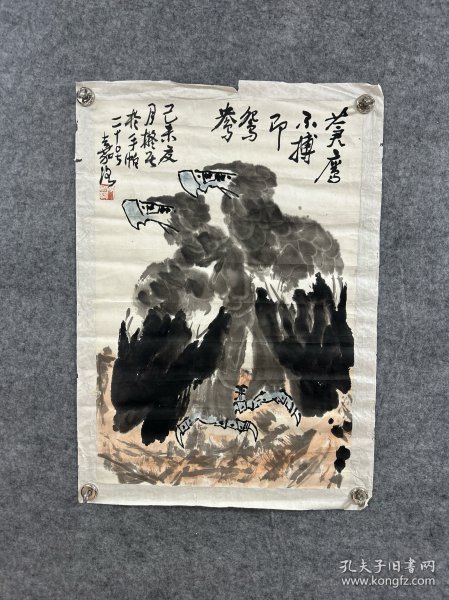 苍鹰
不搏
即
鸳
鸯
己未夏
月
二十号
孔夫子旧书网
www.kongfz.com